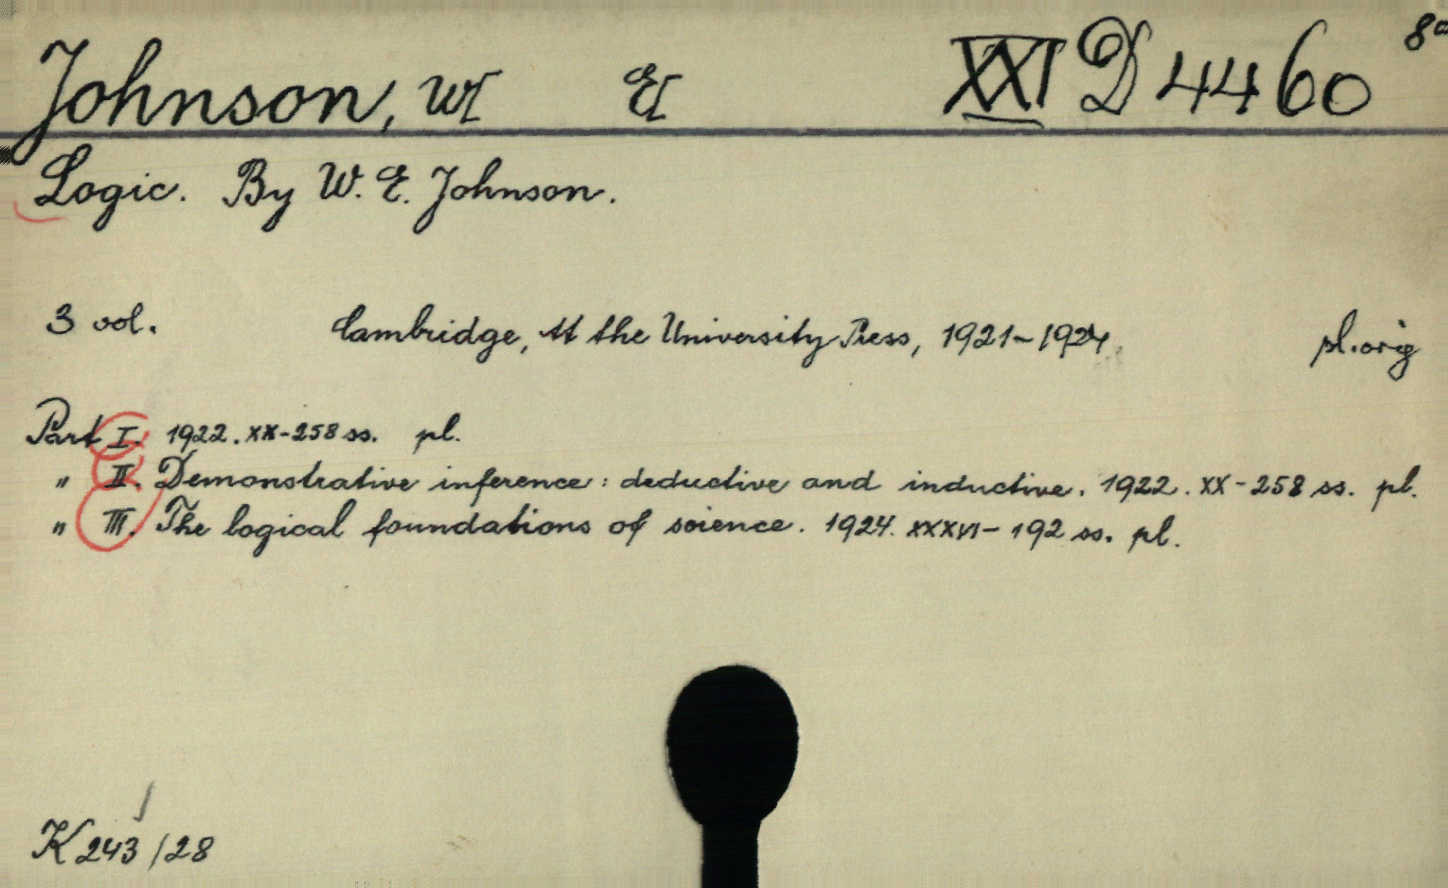 Johnson, W[ E[ XXI D 4460 8°
Logic. By W. E. Johnson.
3 vol. Cambridge, At the University Press, 1921-1924 pl.orig
Part I. 1922. XX-258 ss. pl.
" II. Demonstrative inference: deductive and inductive. 1922. XX-258 ss. pl.
" III. The logical foundations of science. 1924. XXXVI-192 ss. pl.
K 243/28